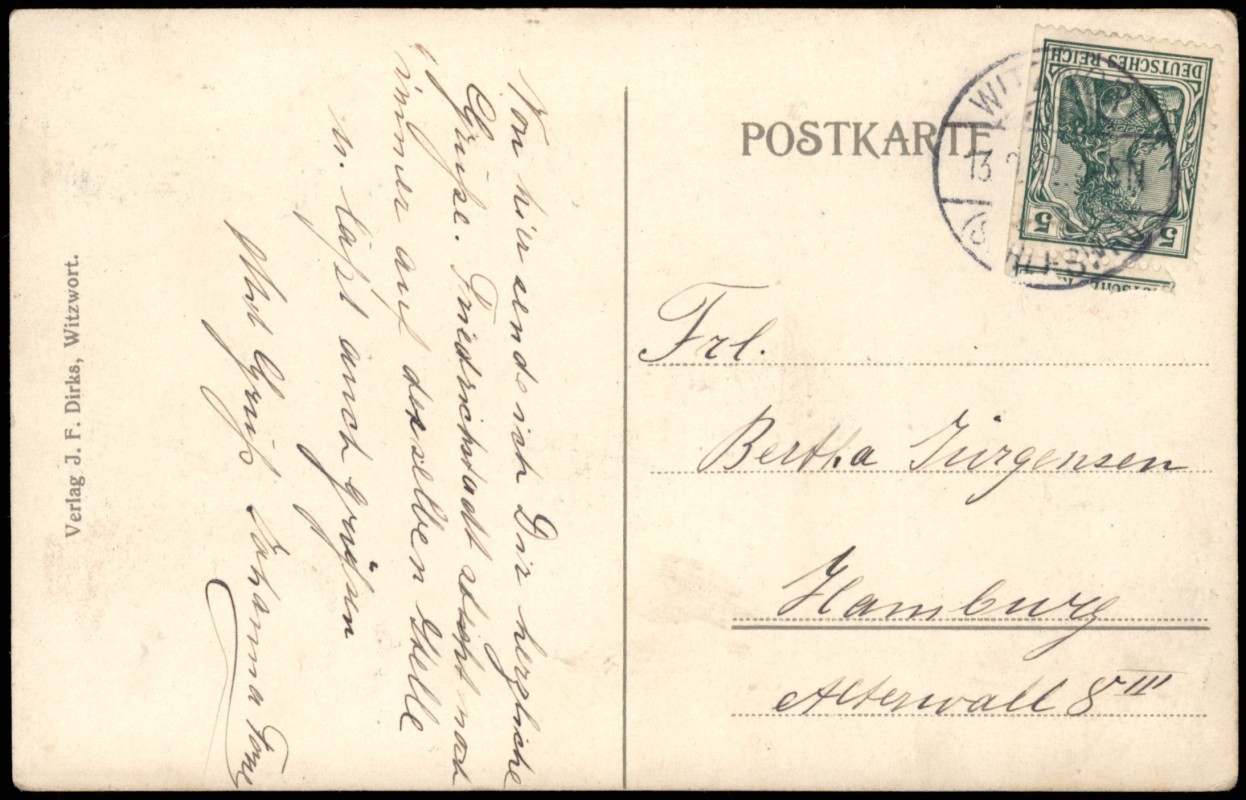 Verlag J. F. Dirks, Witzwort.
Von hier sende ich Dir herzliche
Grüße. Friedrichstadt steht noch
immer auf derselben Stelle
u. läßt auch grüßen
Mit Gruß Johanna
POSTKARTE
DEUTSCHES REICH
5 5
WITZ
13
Frl.
Bertha Jürgensen
Hamburg
Alterwall 8 III